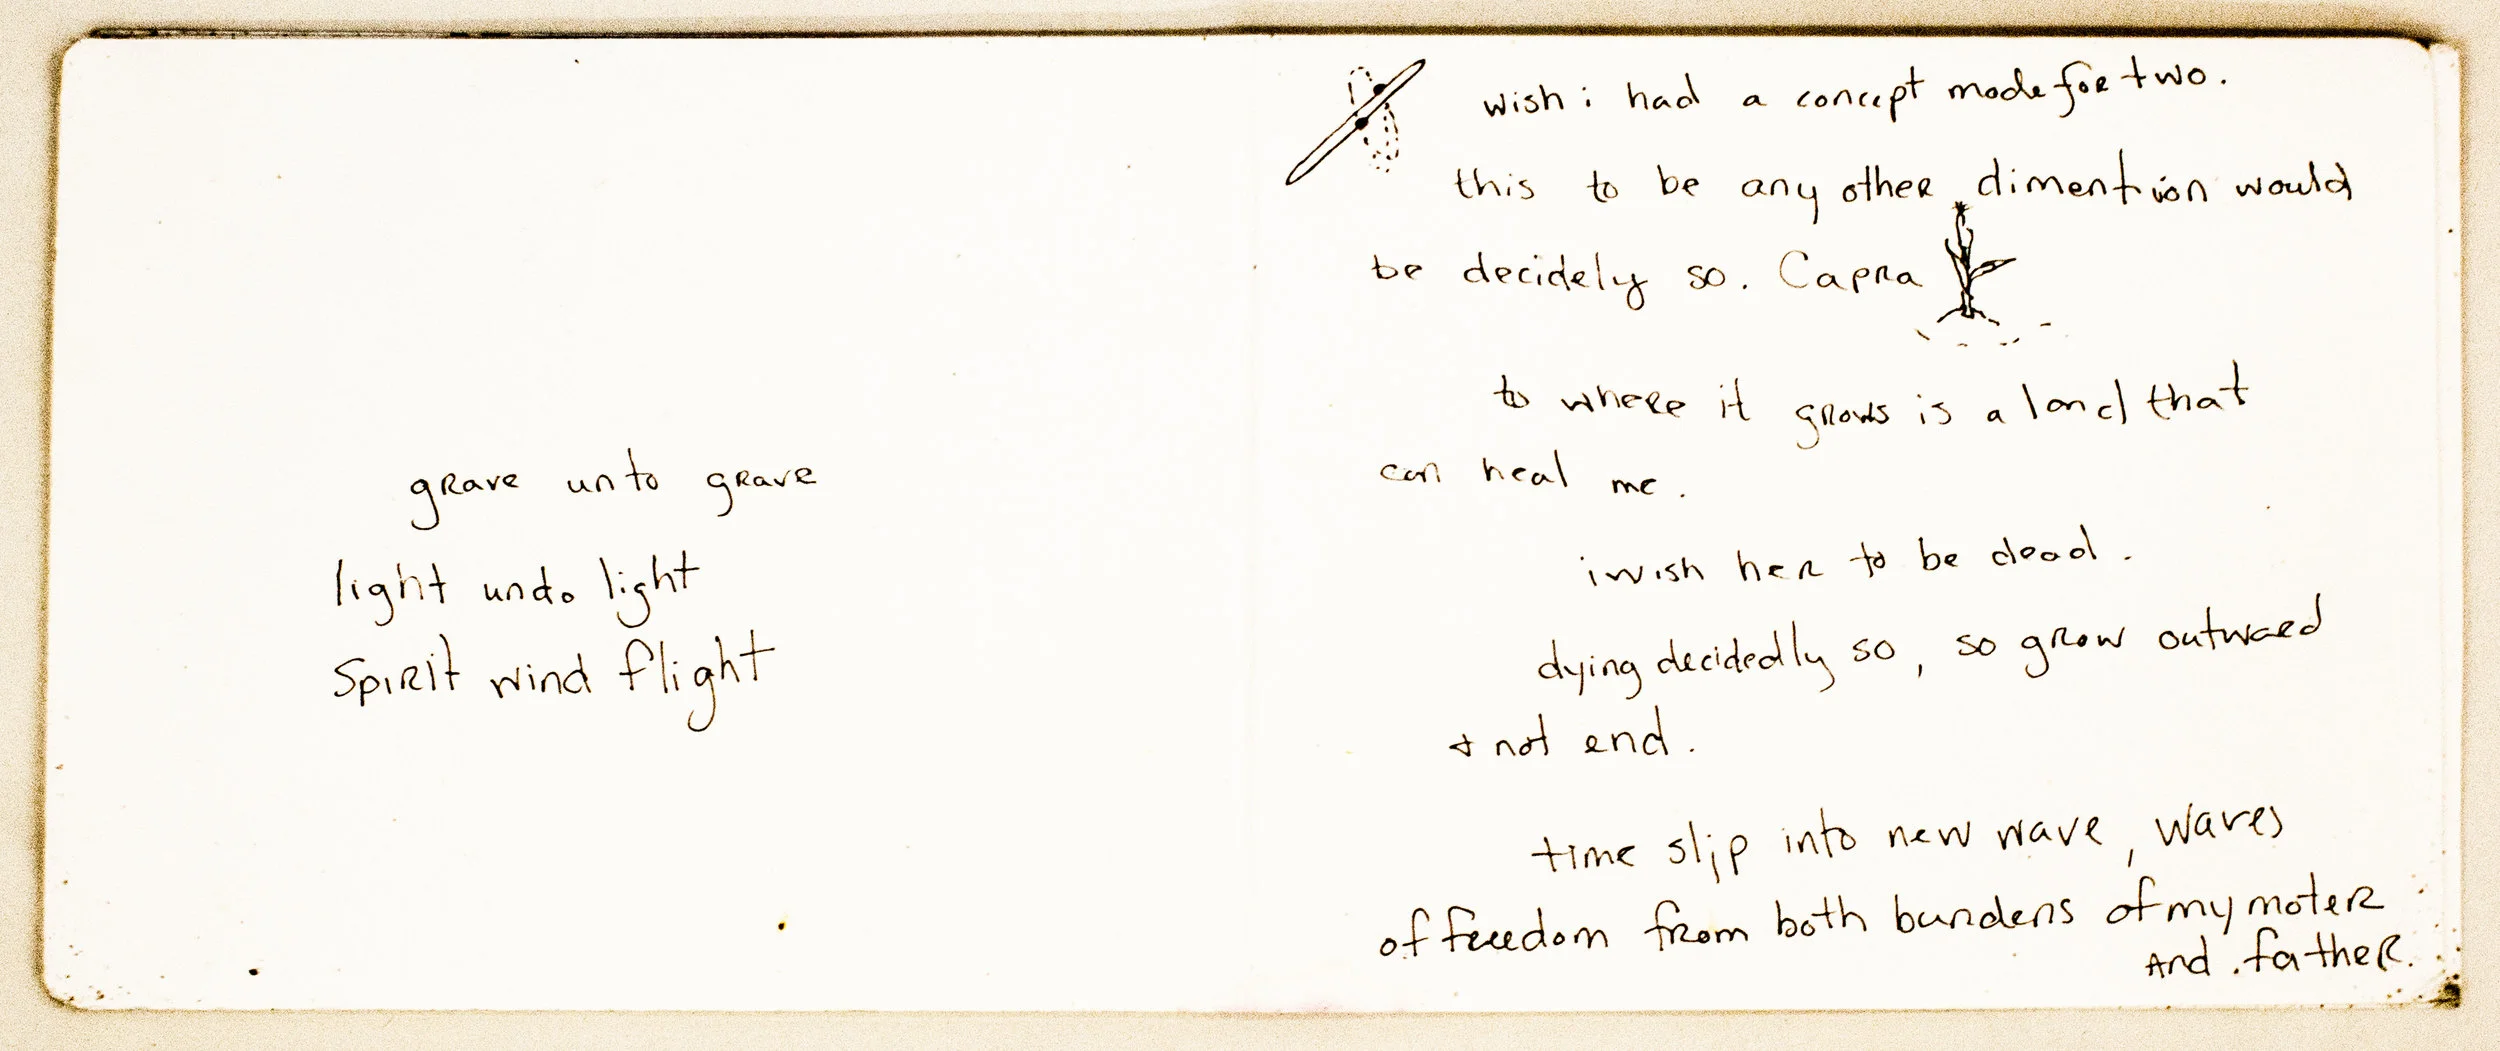 grave unto grave
light undo light
Spirit wind flight
wish i had a concept made for two.
this to be any other dimention would
be decidely so. Capra
to where it grows is a land that
can heal me.
i wish her to be dead.
dying decidedly so, so grow outward
+ not end.
time slip into new wave, waves
of freedom from both burdens of my moter
And father.